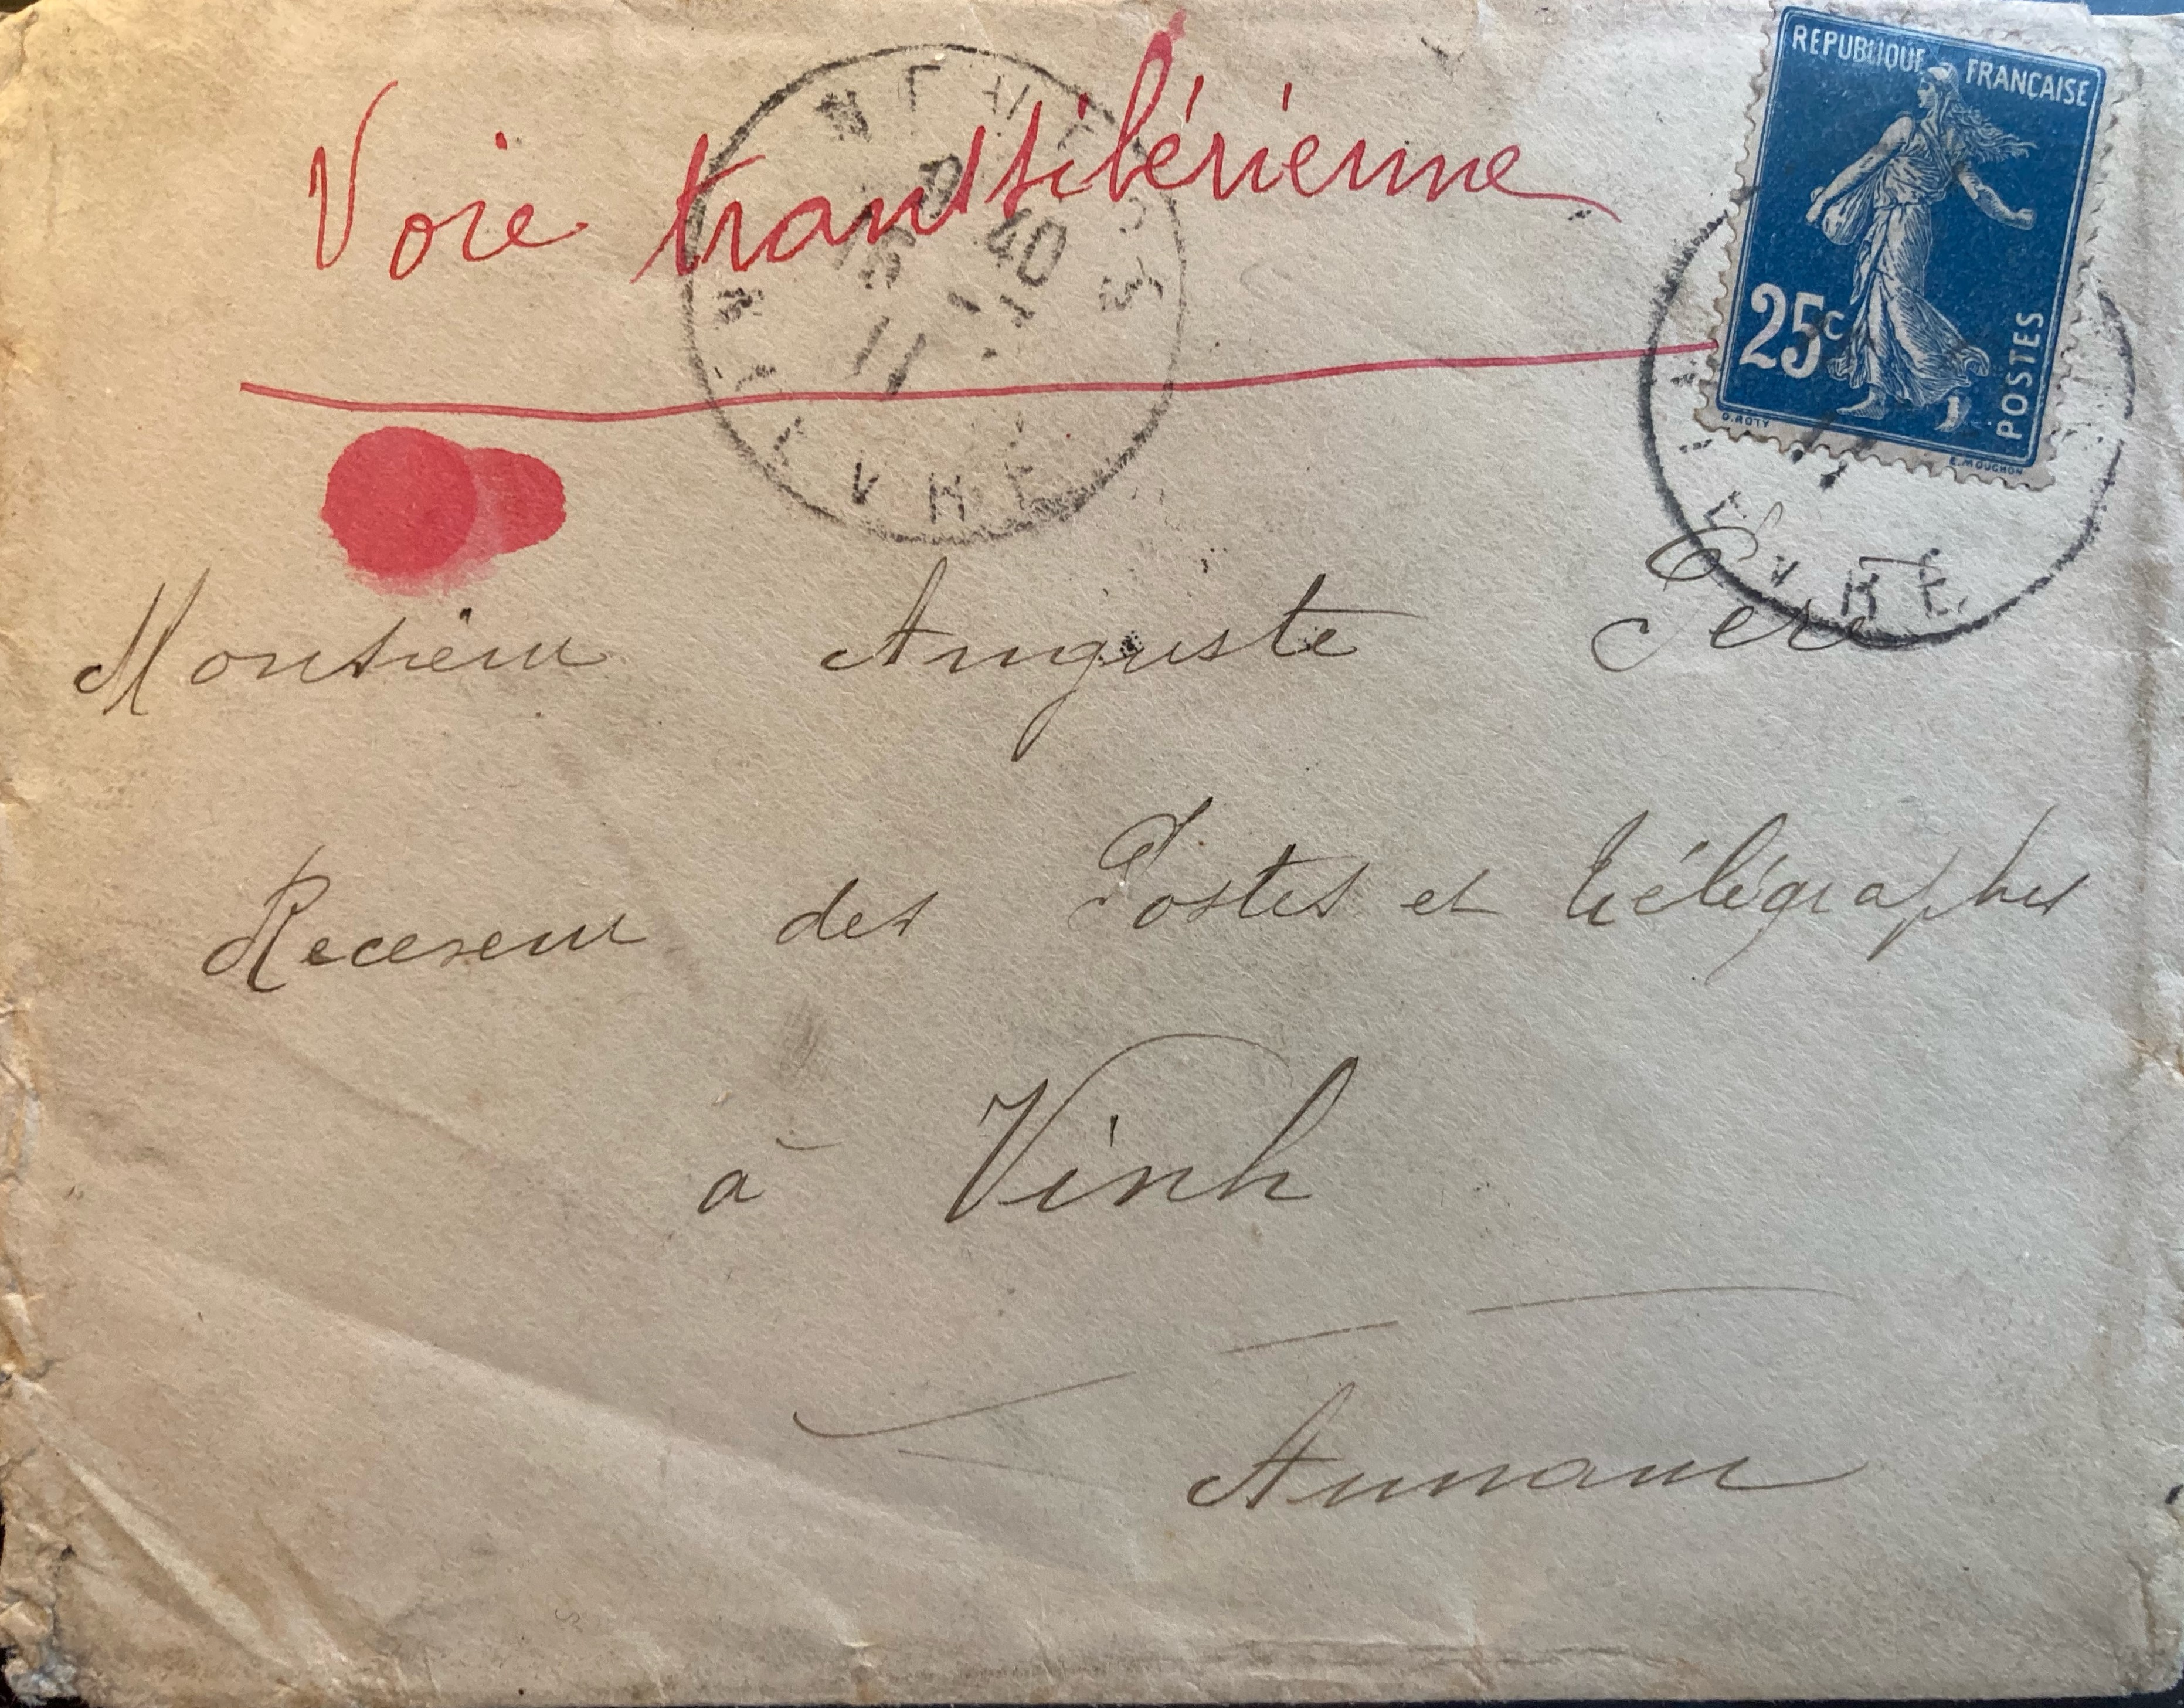 Voie transsibérienne
REPUBLIQUE FRANÇAISE
25c
POSTES
O. ROTY
E. MOUCHON
NEVERS
40
16
11
NIEVRE
Monsieur Auguste Père
Receveur des Postes et Télégraphes
à Vinh
Annam